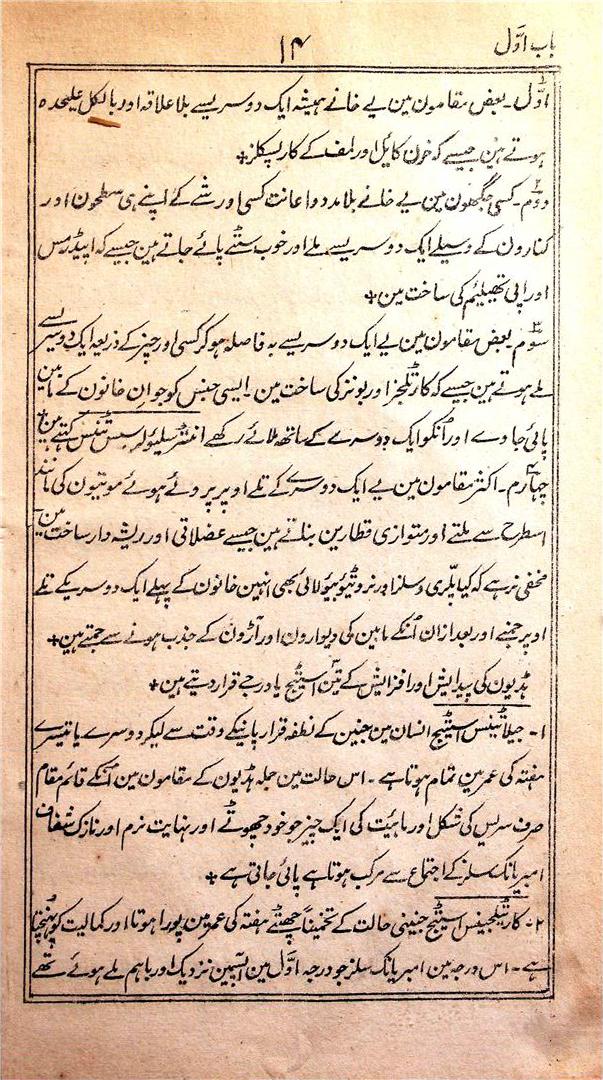 باب اوّل
۱۴
اوّل ۔ بعض مقامون مین یے خانے ہمیشہ ایک دوسریسے بلا علاقہ اور بالکل علیحدہ
ہوتے ہین جیسے کہ خون کایل اور لمف کے کارپسکلز +
دوم ۔ کسی جگھون مین یے خانے بلا مدد و اعانت کسی اور شے کے اپنے ہی سطحون اور
کنارون کے وسیلے ایک دوسریسے ملے اور خوب سٹے پائے جاتے ہین جیسے کہ اپیڈرمس
اور اپی تھیلیم کی ساخت مین +
سوم بعض مقامون مین یے ایک دوسریسے بہ فاصلہ ہو کر کسی اور چیز کے ذریعہ ایک دوسریسے
ملے ہوتے ہین جیسے کہ کارٹلجز اور بونز کی ساخت مین ۔ ایسی جنس کو جو ان خانون کے مابین
پائی جاوے اور انکو ایک دوسرے کے ساتھ ملائے رکھے انٹر سلیولر سبسٹنس کہتے ہین +
چہارم ۔ اکثر مقامون مین یے ایک دوسرے کے تلے اوپر پروئے ہوئے موتیون کی مانند
اسطرح سے ملتے اور متوازی قطارین بناتے ہین جیسے عضلاتی اور ریشہ دار ساخت مین
مخفی نرہے کہ کیاپلری وسلز اور نرو ٹیوبیولائی بھی انہین خانون کے پہلے ایک دوسریکے تلے
اوپر جمنے اور بعد ازان انکے مابین کی دیوارون اور آڑون کے جذب ہونے سے جمتے ہین +
ہڈیون کی پیدایش اور افزایش کے تین اسٹیج یا درجے قرار دیتے ہین +
۱ ۔ جیلاٹینس اسٹیج انسان مین جنین کے نطفہ قرار پانیکے وقت سے لیکر دوسرے یا تیسرے
ہفتہ کی عمر مین تمام ہوتا ہے ۔ اس حالت مین جملہ ہڈیون کے مقامون مین انکے قائم مقام
صرف سریس کی شکل اور ماہیت کی ایک چیز جو خود چھوٹے اور نہایت نرم اور نازک شفاف
امبریانک سلز کے اجتماع سے مرکب ہوتا ہے پائی جاتی ہے +
۲ ۔ کارٹلیجینس اسٹیج جنینی حالت کے تخمیناً چھٹے ہفتہ کی عمر مین پورا ہوتا اور کمالیت کو پہنچتا
ہے ۔ اس درجہ مین امبریانک سلز جو درجہ اوّل مین آپسمین نزدیک اور باہم ملے ہوئے تھے